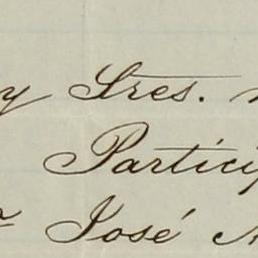 y Sres.
Particip
José